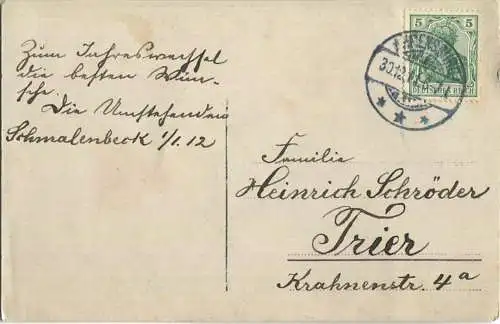 Zum Jahreswechsel
die besten Wün-
sche.
Die Umstehenden
Schmalenbeck 1/1. 12
5 5
DEUTSCHES REICH
30.12.
Familie
Heinrich Schröder
Trier
Krahnenstr. 4a